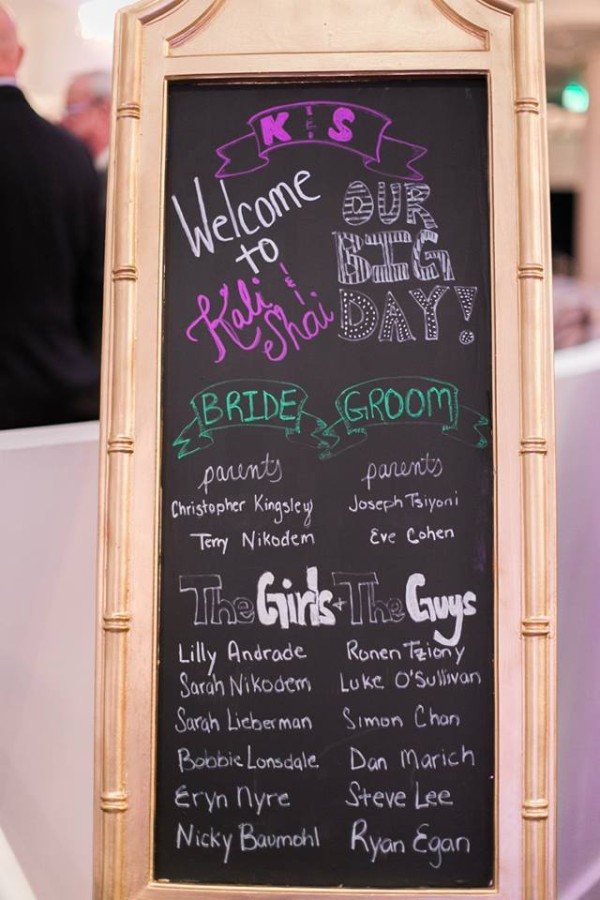 K & S
Welcome
to
Kali
&
Shai
OUR
BIG
DAY!
BRIDE GROOM
parents parents
Christopher Kingsley Joseph Tsiyoni
Terry Nikodem Eve Cohen
The Girls + The Guys
Lilly Andrade Ronen Tziony
Sarah Nikodem Luke O'Sullivan
Sarah Lieberman Simon Chan
Bobbie Lonsdale Dan Marich
Eryn Nyre Steve Lee
Nicky Baumohl Ryan Egan